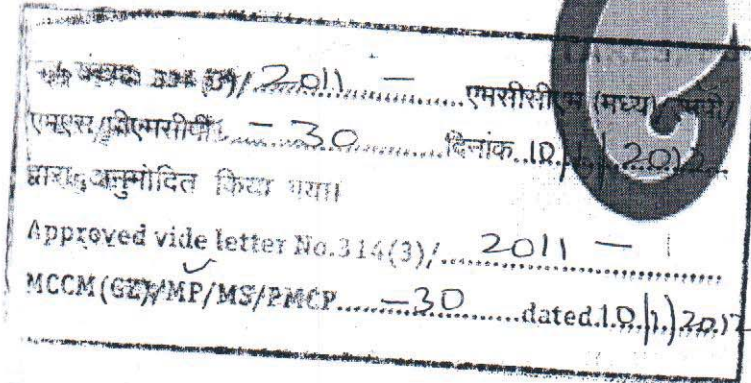 / 2011 — एमसीसीएम (मध्य)
— 30 दिनांक 10/1/2012
द्वारा अनुमोदित किया गया।
Approved vide letter No.314(3)/ 2011 —
MCCM(GZ)/MP/MS/PMCP — 30 dated 10/1/2012